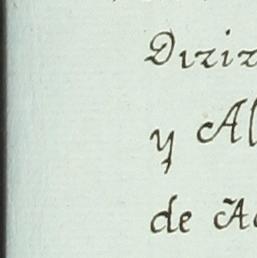 Diriz
y Al
de Ac